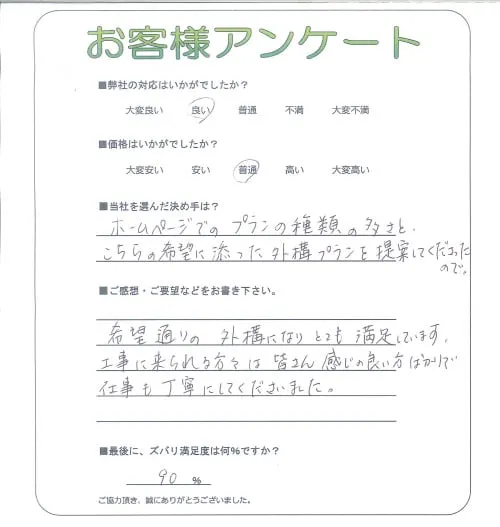 お客様アンケート
■弊社の対応はいかがでしたか？
大変良い 良い 普通 不満 大変不満
■価格はいかがでしたか？
大変安い 安い 普通 高い 大変高い
■当社を選んだ決め手は？
ホームページでのプランの種類の多さと、
こちらの希望に添った外構プランを提案してくださった
ので。
■ご感想・ご要望などをお書き下さい。
希望通りの外構になりとても満足しています。
工事に来られる方々は皆さん感じの良い方ばかりで
仕事も丁寧にしてくださいました。
■最後に、ズバリ満足度は何%ですか？
90 %
ご協力頂き、誠にありがとうございました。